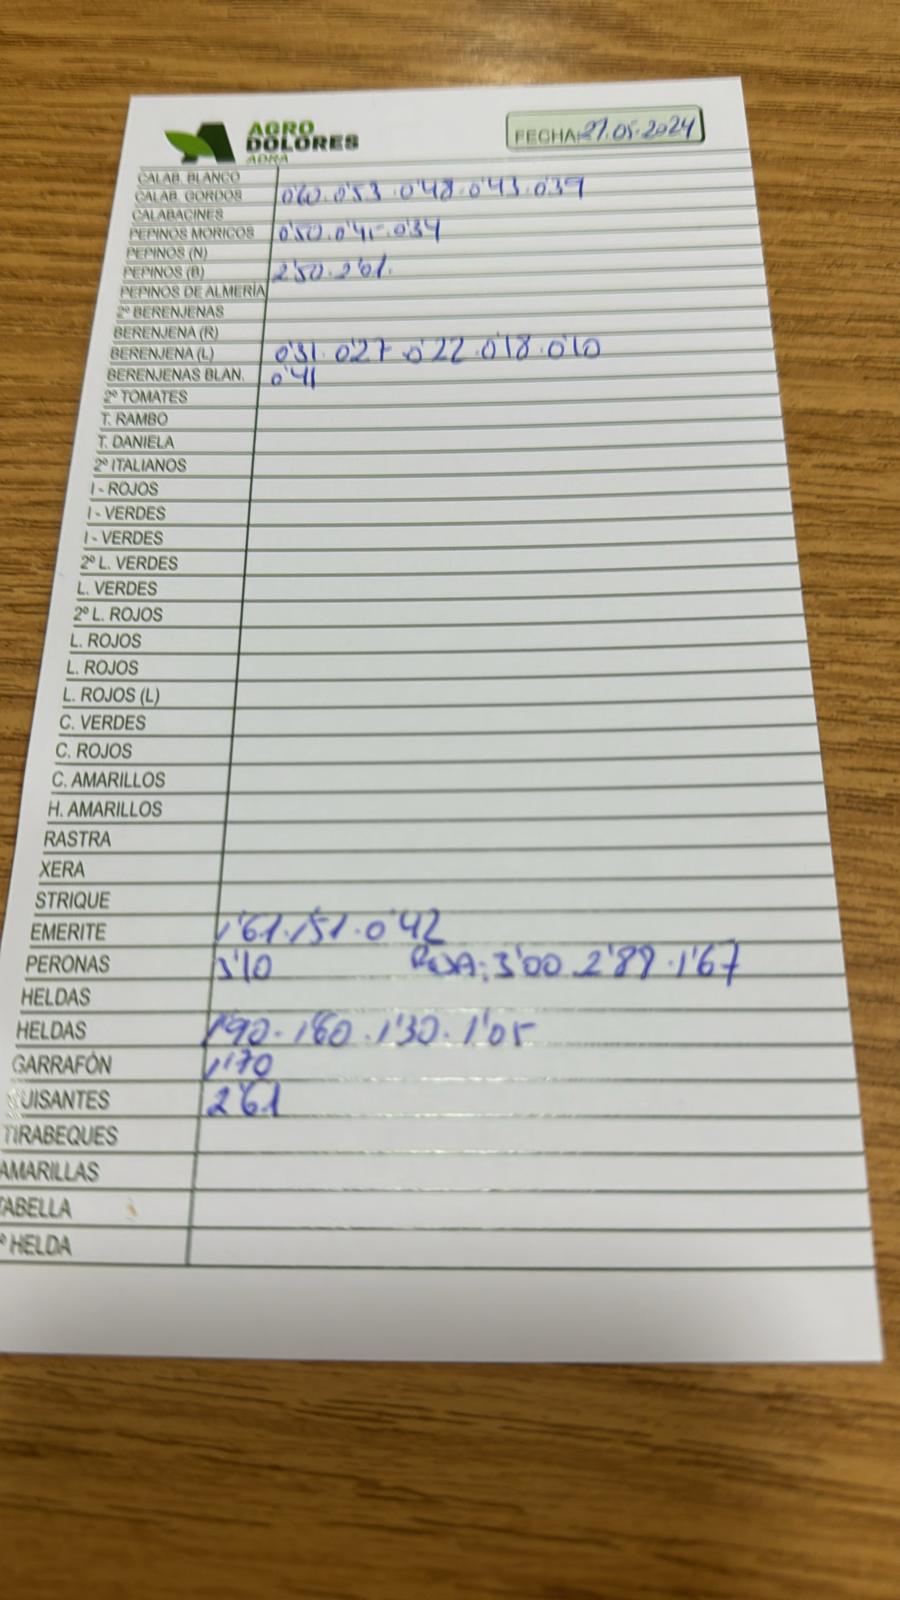 AGRO
DOLORES
ADRA
FECHA: 27.05.2024
CALAB. BLANCO
CALAB. GORDOS 0'60. 0'53. 0'48. 0'43. 0'39
CALABACINES
PEPINOS MORICOS 0'50. 0'45. 0'34
PEPINOS (N)
PEPINOS (B) 2'50. 2'61.
PEPINOS DE ALMERÍA
2º BERENJENAS
BERENJENA (R)
BERENJENA (L) 0'31. 0'27. 0'22. 0'18. 0'10
BERENJENAS BLAN. 0'41
2º TOMATES
T. RAMBO
T. DANIELA
2º ITALIANOS
I - ROJOS
I - VERDES
I - VERDES
2º L. VERDES
L. VERDES
2º L. ROJOS
L. ROJOS
L. ROJOS
L. ROJOS (L)
C. VERDES
C. ROJOS
C. AMARILLOS
H. AMARILLOS
RASTRA
XERA
STRIQUE
EMERITE 1'61. 1'51. 0'42
PERONAS 3'10 ROJA: 3'00. 2'89. 1'67
HELDAS
HELDAS 1'90. 1'60. 1'30. 1'05
GARRAFÓN 1'70
GUISANTES 2'61
TIRABEQUES
AMARILLAS
TABELLA
º HELDA